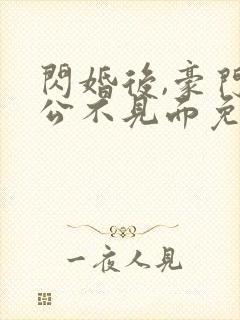 閃婚後,豪門
公不見面免
一夜人見